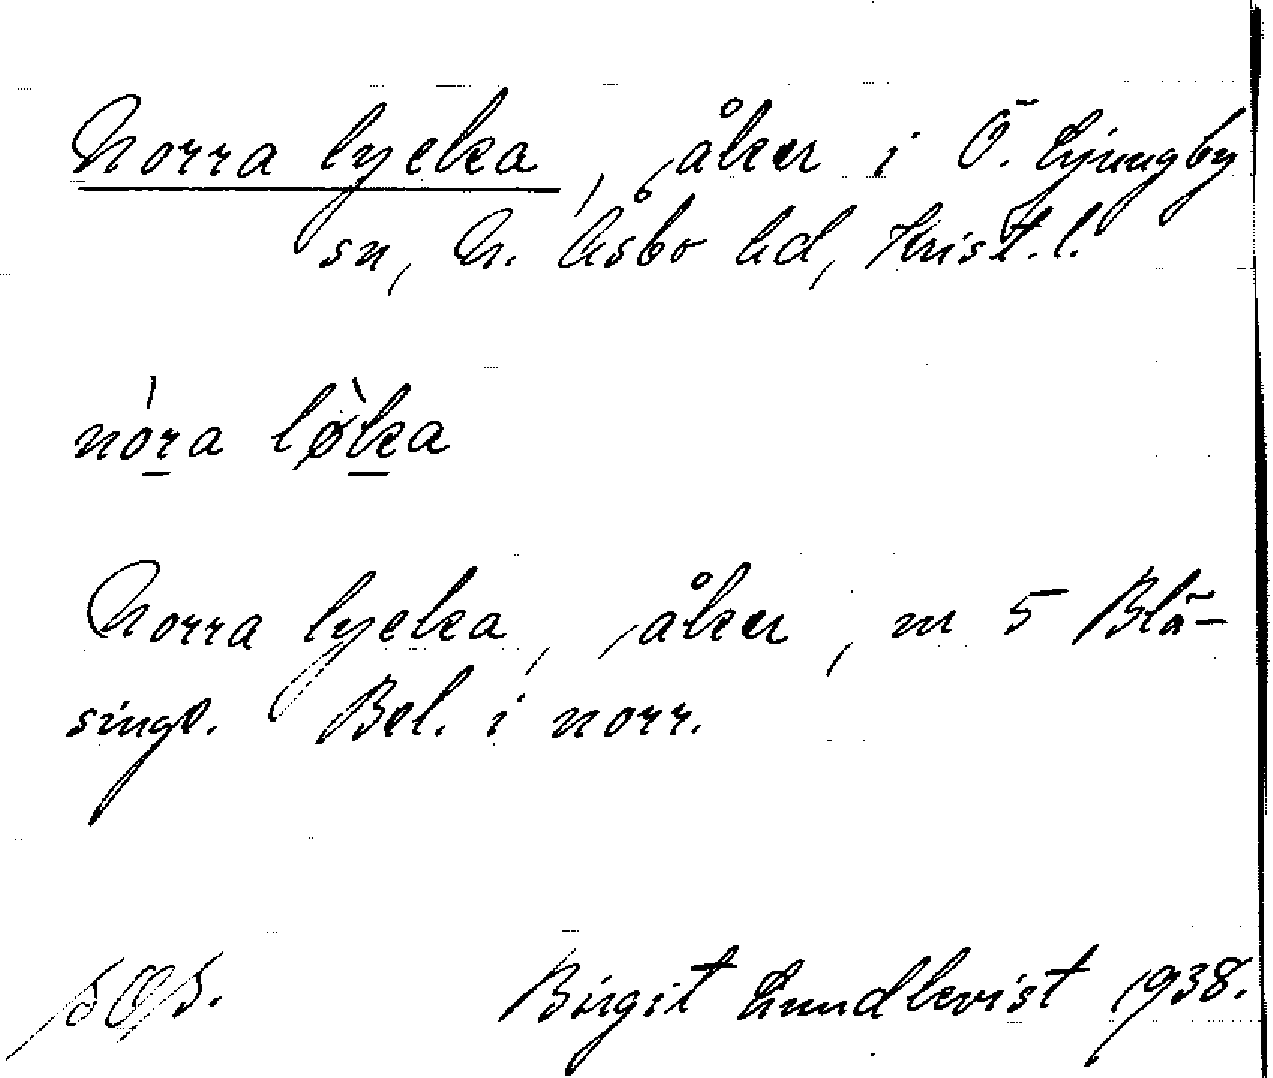 Norra lycka, åker i Ö. Ljungby
sn, N. Åsbo hd, Krist. l.
nòra lø̀ka
Norra lycka, åker, m 5 Blä-
singe. Bel. i norr.
Birgit Lundkvist 1938.